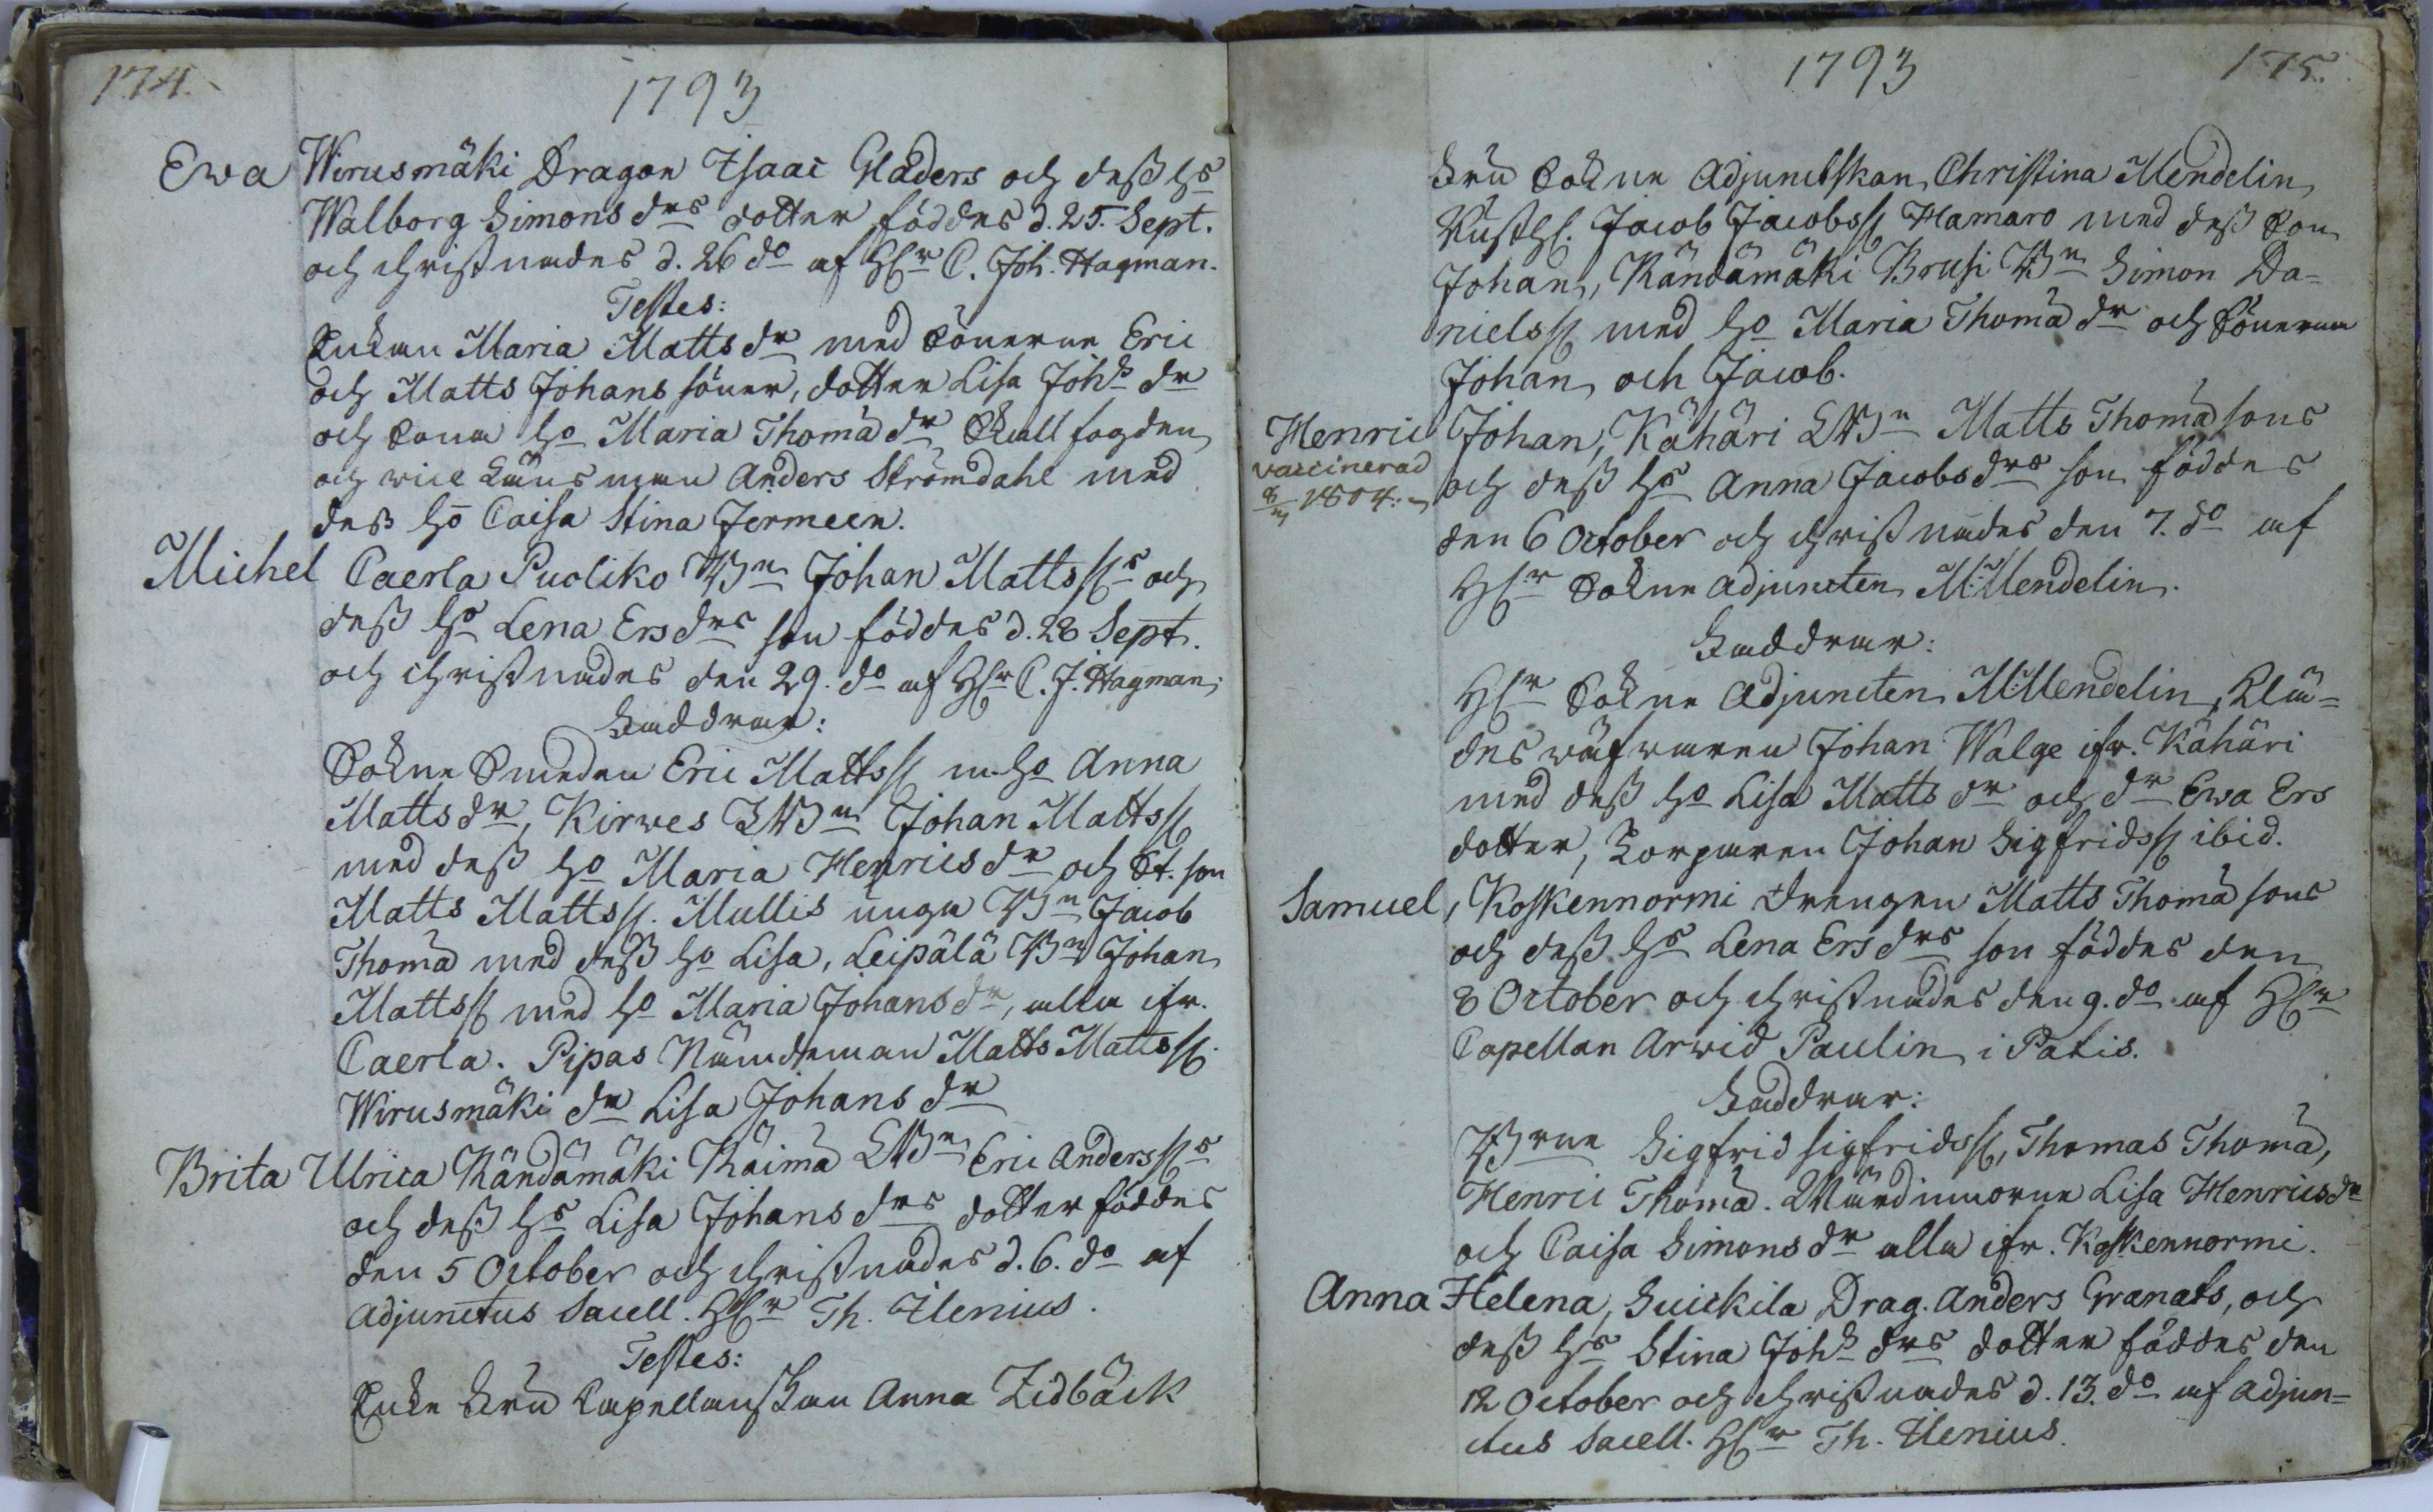 174.
1793
Ewa Wirusmäki Dragon Isaac Gladers och dess hs
Walborg Simons drs dotter föddes d. 25. Sept.
och christnades d. 26 do af Hr C. Joh. Hagman.
Testes:
Enkan Maria Matts dr med Sönerne Eric
och Matts Johans söner, dotter Lisa Johs dr
och Sona ho Maria Thomæ dr Skallfogden
och vice Länsman Anders Strömdahl med
dess ho Caisa Stina Jermeen.
Michel Caerla Puoliko Bn Johan Mattss:s och
dess hs Lena Ers drs son föddes d. 28 Sept.
och christnades den 29. do af Hr C. J. Hagman.
Faddrar:
Sokne Smeden Eric Mattss: m. ho Anna
Matts dr, Kirwes LBn Johan Mattss:
med dess ho Maria Henrics dr och St. son
Matts Mattss. Mullis unga Bn Jacob
Thomæ med dess ho Lisa, Leipälä Bn Johan
Mattss: med ho Maria Johans dr, alla ifr.
Caerla. Pipas Nämdeman Matts Mattss:
Wirusmäki dr Lisa Johans dr
Brita Ulrica Rändämäki Räimä LBn Eric Anderss:s
och dess hs Lisa Johans drs dotter föddes
den 5 October och christnades d. 6. do af
Adjunctus Sacell. Hr Th. Ilenius.
Testes:
Enke Fru Capellanskan Anna Lidbäck
1793
175.
Fru Sokne Adjunctskan Christina Mendelin,
Rusth. Jacob Jacobss: Hamaro med dess Son
Johan, Rändämäki Brusi Bn Simon Da=
nielss: med ho Maria Thomæ dr och Sönerna
Johan, och Jacob.
Henric Johan, Kähäri LBn Matts Thomæ sons
vaccinerad
1804.
och dess hs Anna Jacobs drs son föddes
den 6 October och christnades den 7. do af
Hr Sokne Adjuncten M: Mendelin.
Faddrar:
Hr Sokne Adjuncten M: Mendelin, Klä=
deswäfwaren Johan Walge ifr. Kähäri
med dess ho Lisa Matts dr och dr Ewa Ers
dotter, Torparen Johan Sigfridss: ibid.
Samuel, Koskennormi Drengen Matts Thomæ sons
och dess hs Lena Ers drs son föddes den
8 October och christnades den 9. do af Hr
Capellan Arwid Paulin i Patis.
Faddrar:
Brne Sigfrid Sigfridss:, Thomas Thomæ,
Henric Thomæ. Wärdinnorne Lisa Henrics dr
och Caisa Simons dr alla ifr. Koskennormi.
Anna Helena, Suickila Drag. Anders Granats, och
dess hs Stina Johs drs dotter föddes den
12 October och christnades d. 13. do af Adjun=
ctus Sacell. Hr Th. Ilenius.